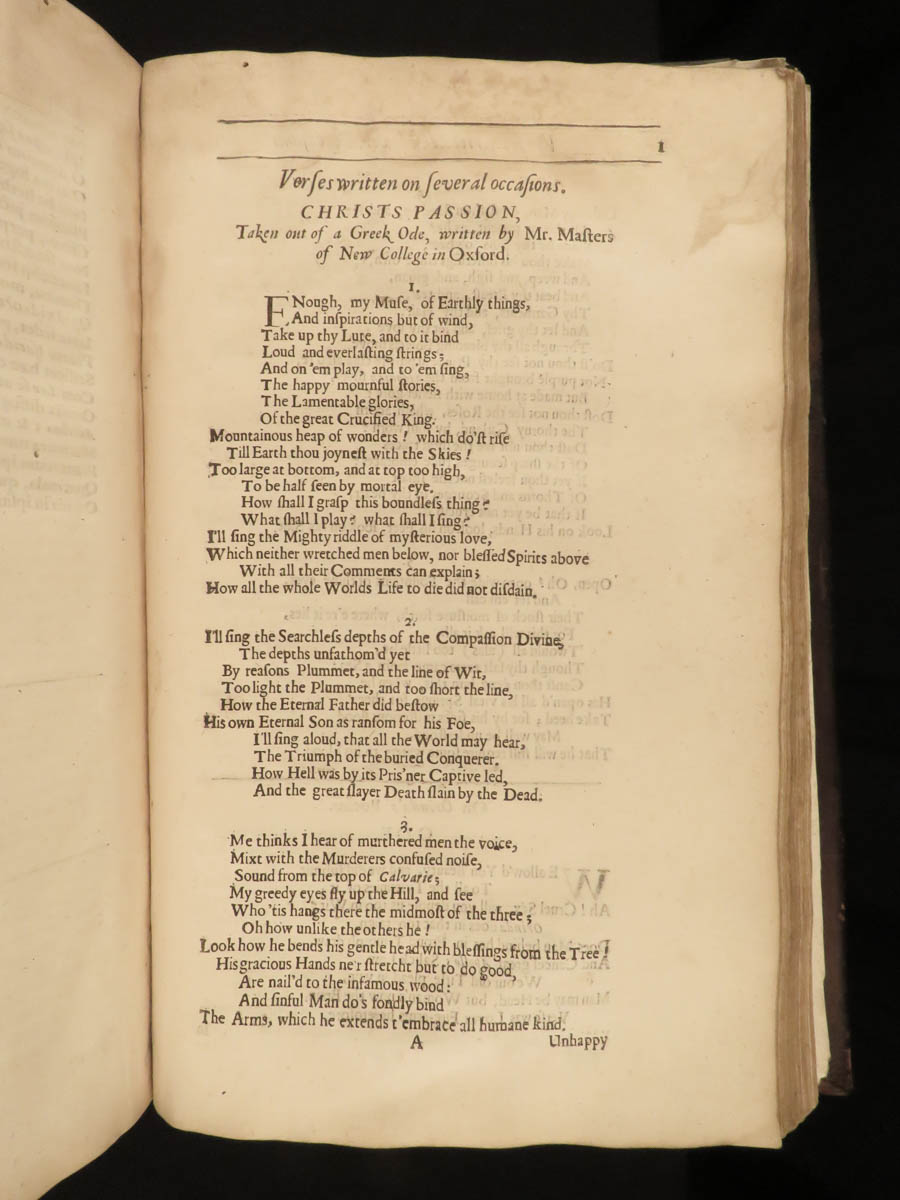 1
Verſes written on ſeveral occaſions.
CHRISTS PASSION,
Taken out of a Greek Ode, written by Mr. Maſters
of New College in Oxford.
1.
ENough, my Muſe, of Earthly things,
And inſpirations but of wind,
Take up thy Lute, and to it bind
Loud and everlaſting ſtrings;
And on 'em play, and to 'em ſing,
The happy mournful ſtories,
The Lamentable glories,
Of the great Crucified King.
Mountainous heap of wonders! which do'ſt riſe
Till Earth thou joyneſt with the Skies!
Too large at bottom, and at top too high,
To be half ſeen by mortal eye.
How ſhall I graſp this boundleſs thing?
What ſhall I play? what ſhall I ſing?
I'll ſing the Mighty riddle of myſterious love,
Which neither wretched men below, nor bleſſed Spirits above
With all their Comments can explain;
How all the whole Worlds Life to die did not diſdain.
2.
I'll ſing the Searchleſs depths of the Compaſſion Divine,
The depths unfathom'd yet
By reaſons Plummet, and the line of Wit,
Too light the Plummet, and too ſhort the line,
How the Eternal Father did beſtow
His own Eternal Son as ranſom for his Foe,
I'll ſing aloud, that all the World may hear,
The Triumph of the buried Conquerer.
How Hell was by its Pris'ner Captive led,
And the great ſlayer Death ſlain by the Dead.
3.
Me thinks I hear of murthered men the voice,
Mixt with the Murderers confuſed noiſe,
Sound from the top of Calvarie;
My greedy eyes fly up the Hill, and ſee
Who 'tis hangs there the midmoſt of the three;
Oh how unlike the others he!
Look how he bends his gentle head with bleſſings from the Tree!
His gracious Hands ne'r ſtretcht but to do good,
Are nail'd to the infamous wood:
And ſinful Man do's fondly bind
The Arms, which he extends t'embrace all humane kind.
A Unhappy